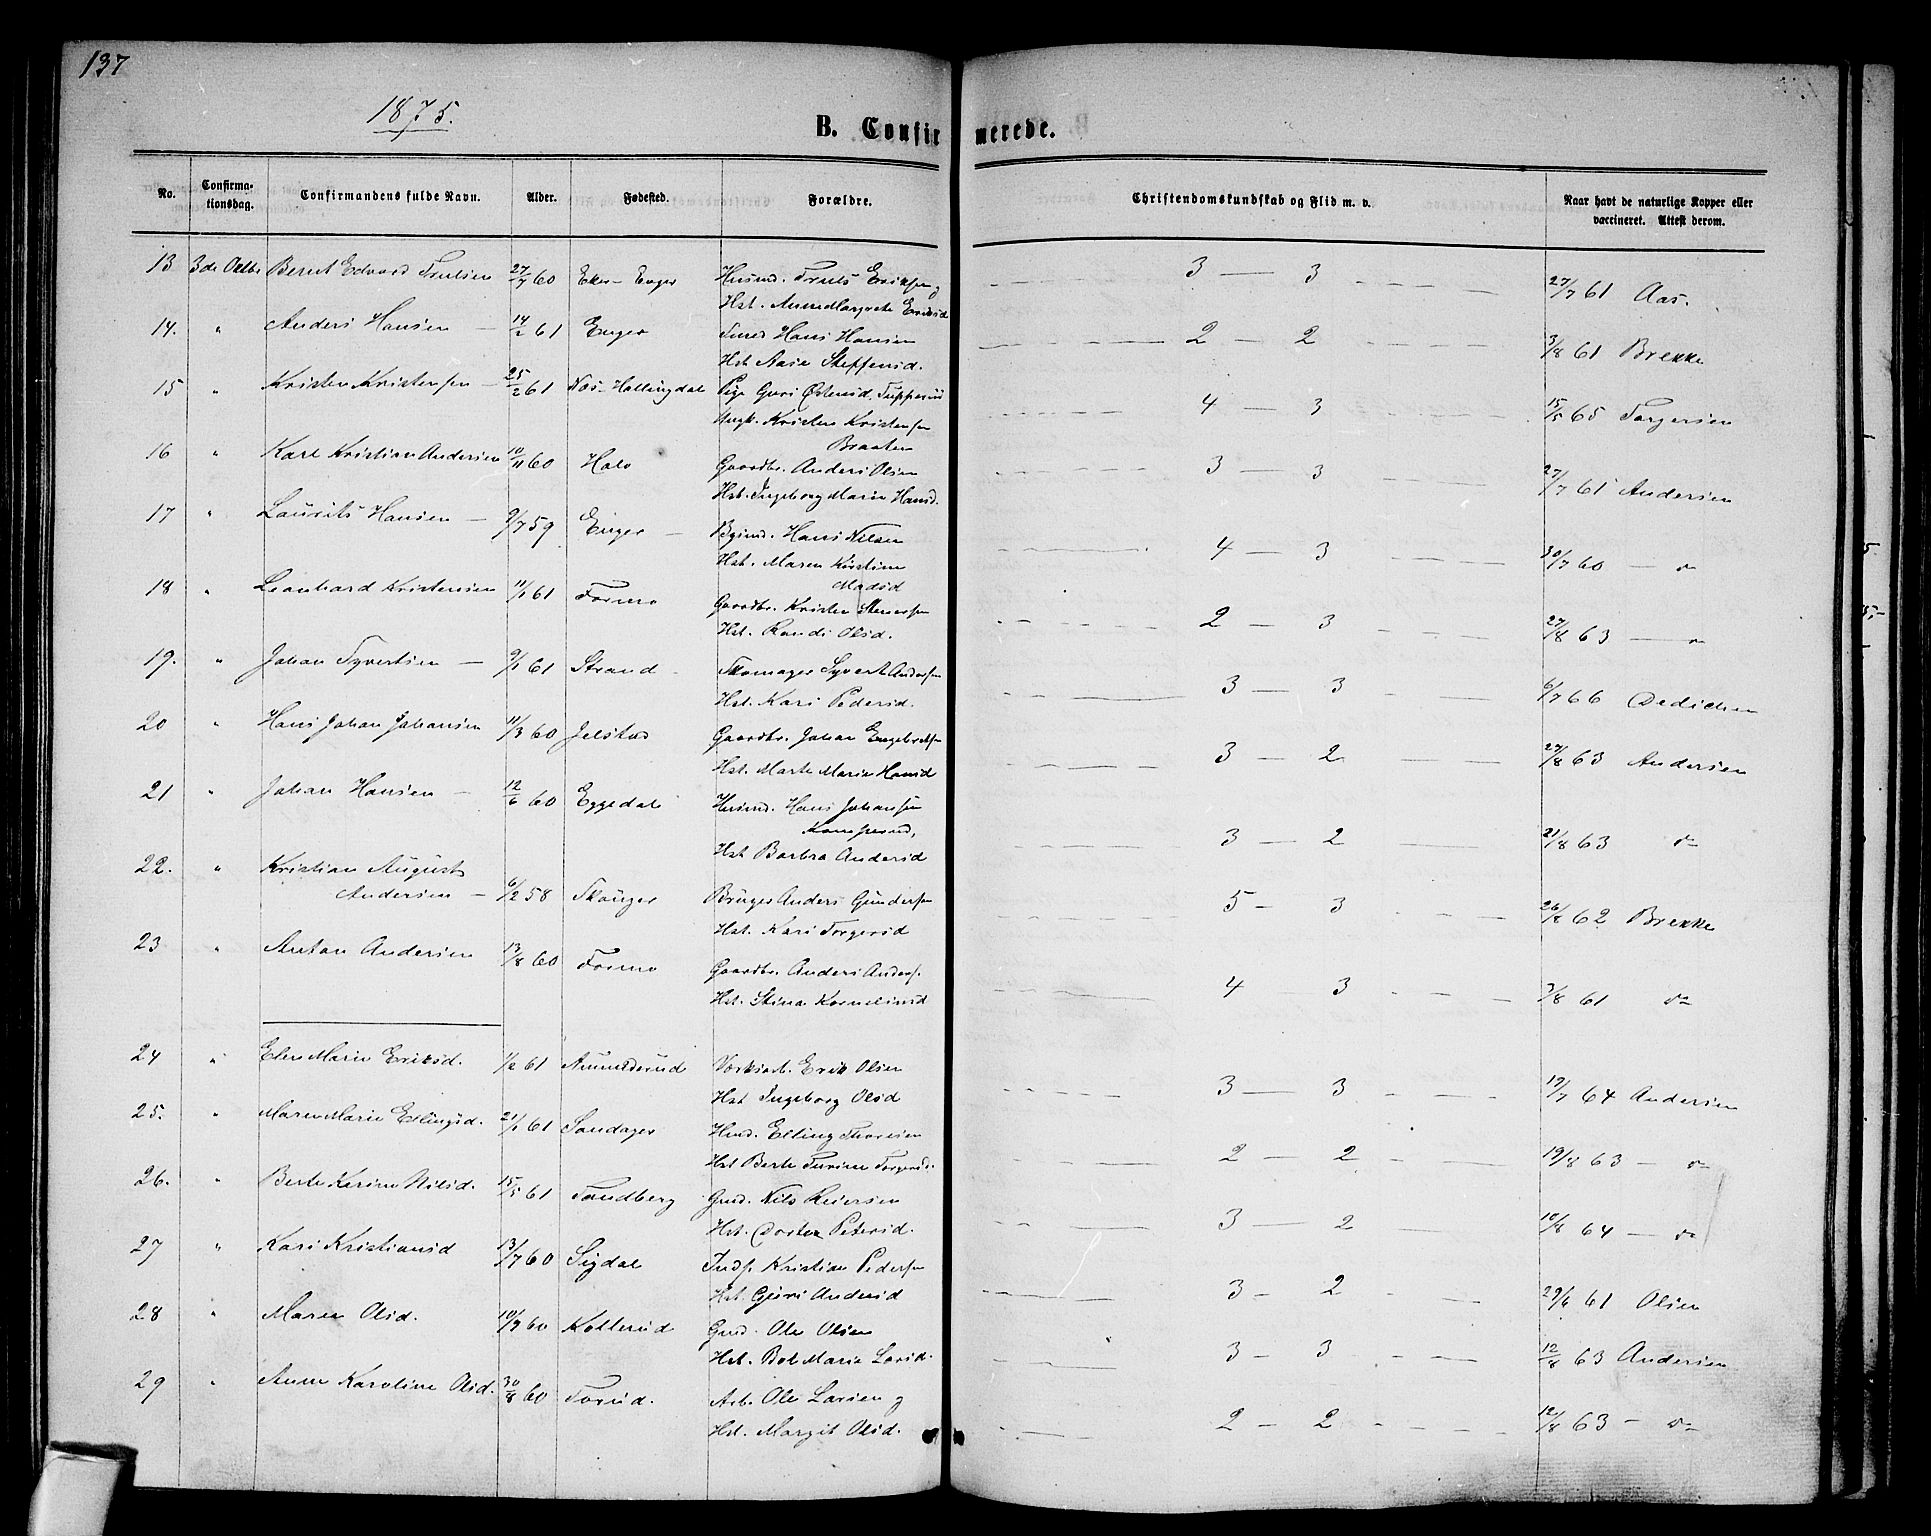 137
1875.
B. Confirmerede.
No. Confirmationsdag. Confirmandens fulde Navn. Alder. Fødested. Forældre. Christendomskundskab og Flid m. v. Naar havt de naturlige Kopper eller vaccineret. Attest derom.
13 3de Octbr Bernt Edvard Trulsen 27/4 60 Eker- Enger Husmd. Truls Eriksen og 3 — 3 27/7 61 Aas.
Hst. Anne Margrete Eriksd
14. " Anders Hansen — 14/2 61 Enger Hans Hansen 2 — 2 3/8 61 Brekke
Hst Aase Steffensd.
15 " Kristen Kristensen — 25/2 61 Næs- Hallingdal Pige Guri Østensd. 4 — 3 15/5 65 Torgersen
Ungk. Kristen Kristensen
Braaten
16 " Karl Kristian Andersen 10/11 60 Hals Gaardbr. Anders Olsen 3 — 3 27/7 61 Andersen
Hst. Ingeborg Marie Hansd.
17 " Laurits Hansen — 9/7 59 Enger — Bgsmd. Hans Nilsen 4 — 3 30/7 60 — do
Hst. Maren Kirstine
Madsd
18 " Leonhard Kristensen 11/1 61 Formo Gaardbr. Kristen Stenersen 2 — 3 27/8 63 — do
Hst. Randi Olsd.
19. " Johan Syvertsen — 9/1 61 Strand Skomager Syvert Andersen 3 — 3 6/7 66 Dedichen
Hst. Kari Pedersd.
20 " Hans Johan Johansen 11/3 60 Jelstad Gaardbr. Johan Engebretsen 3 — 2 27/8 63 Andersen
Hst. Marte Marie Hansd
21 " Johan Hansen — 12/6 60 Eggedal Husmd. Hans Johansen
Hst Barbra Andersd 3 — 2 21/8 63 do
22. " Kristian August
Andersen — 6/2 58 Skouger Bruger Anders Gundersen 5 - 3 26/8 62 Brekke
Hst. Kari Torgersd
23 " Anton Andersen 13/8 60 Formo Gaardbr. Anders Anders. 4 — 3 3/8 61 do
Hst. Stina Korneliusd
24 " Elen Marie Eriksd. 1/2 61 Aamodtsrud Værksarb. Erik Olsen 3 — 3 19/7 64 Andersen
Hst Ingeborg Olsd
25. " Maren Marie Ellingsd. 21/1 61 Sandager Hmd. Elling Thoresen 2 — 2 19/8 63 — do
Hst Berte Turine Torgersd.
26. " Berte Karine Nilsd. 15/5 61 Sandberg Gmd. Nils Reiersen 3 — 2 10/8 64 — do
Hst. Dortea Petersd.
27 " Kari Kristiansd 13/7 60 Sigdal Inds. Kristian Pedersen 3 — 2 29/6 61 Olsen
Hst. Guri Andersd
28 " Maren Olsd. 10/9 60 Kollerud Gmd. Ole Olsen 3 — 3 12/8 63 Andersen
Hst. Bol Marie Larsd.
29 " Anne Karoline Olsd. 30/8 60 Forud. Arb. Ole Larsen og 2 — 2 12/8 63 — do
Hst. Margit Olsd.